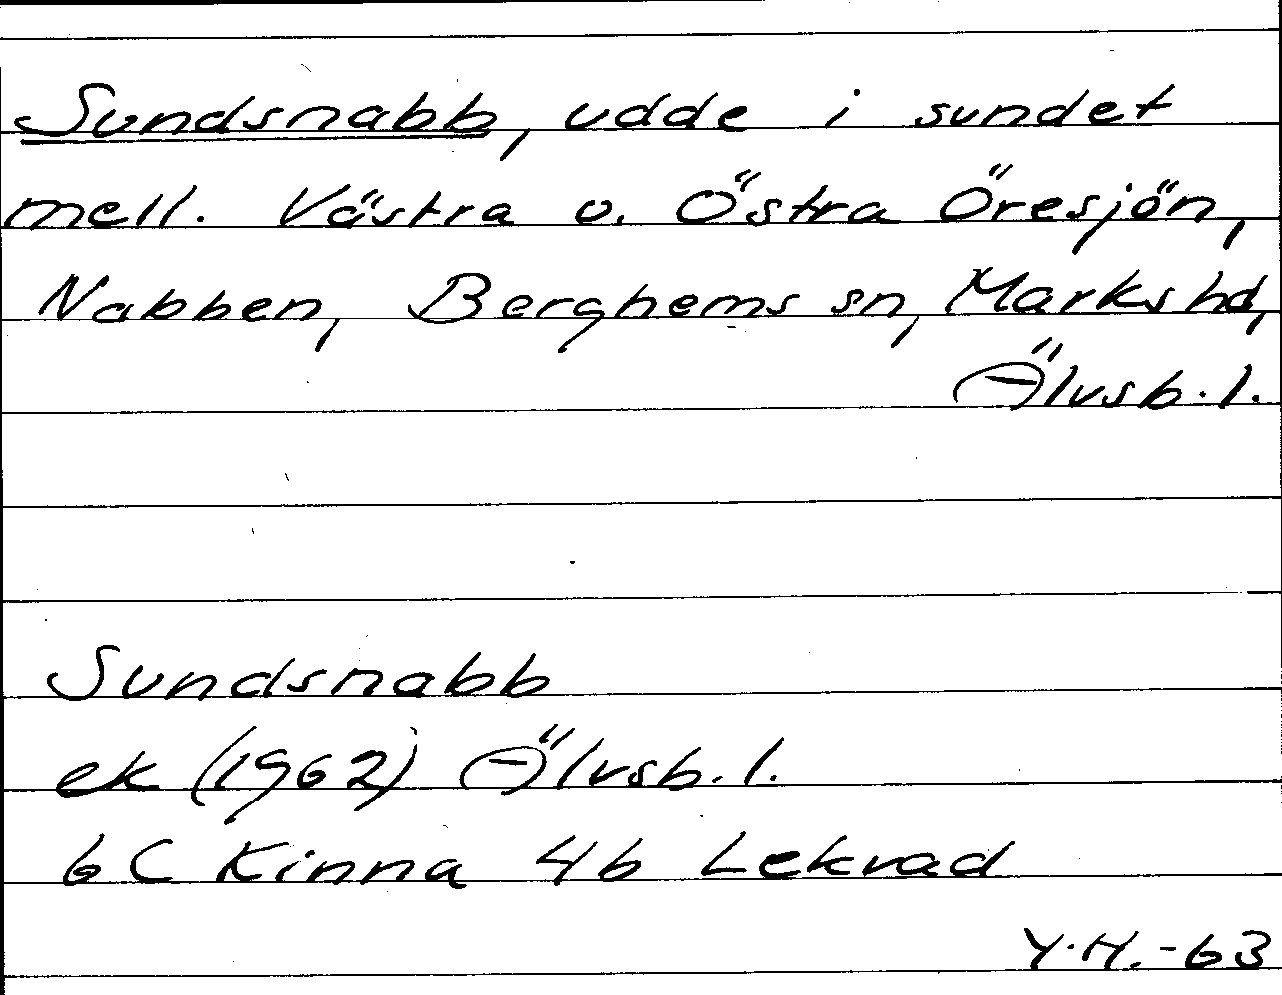 Sundsnabb, udde i sundet
mell. Västra o. Östra Öresjön,
Nabben, Berghems sn, Marks hd,
Älvsb. l.
Sundsnabb
ek (1962) Älvsb. l.
6 C Kinna 4b Lekvad
Y.H.-63